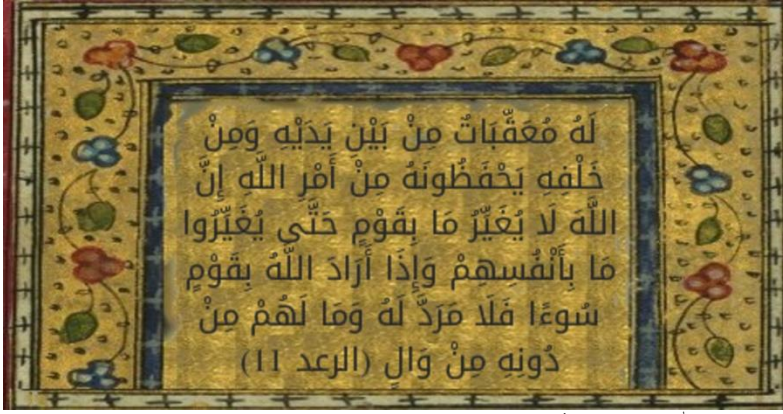 لَهُ مُعَقِّبَاتٌ مِنْ بَيْنِ يَدَيْهِ وَمِنْ
خَلْفِهِ يَحْفَظُونَهُ مِنْ أَمْرِ اللَّهِ إِنَّ
اللَّهَ لَا يُغَيِّرُ مَا بِقَوْمٍ حَتَّى يُغَيِّرُوا
مَا بِأَنْفُسِهِمْ وَإِذَا أَرَادَ اللَّهُ بِقَوْمٍ
سُوءًا فَلَا مَرَدَّ لَهُ وَمَا لَهُمْ مِنْ
دُونِهِ مِنْ وَالٍ (الرعد 11)